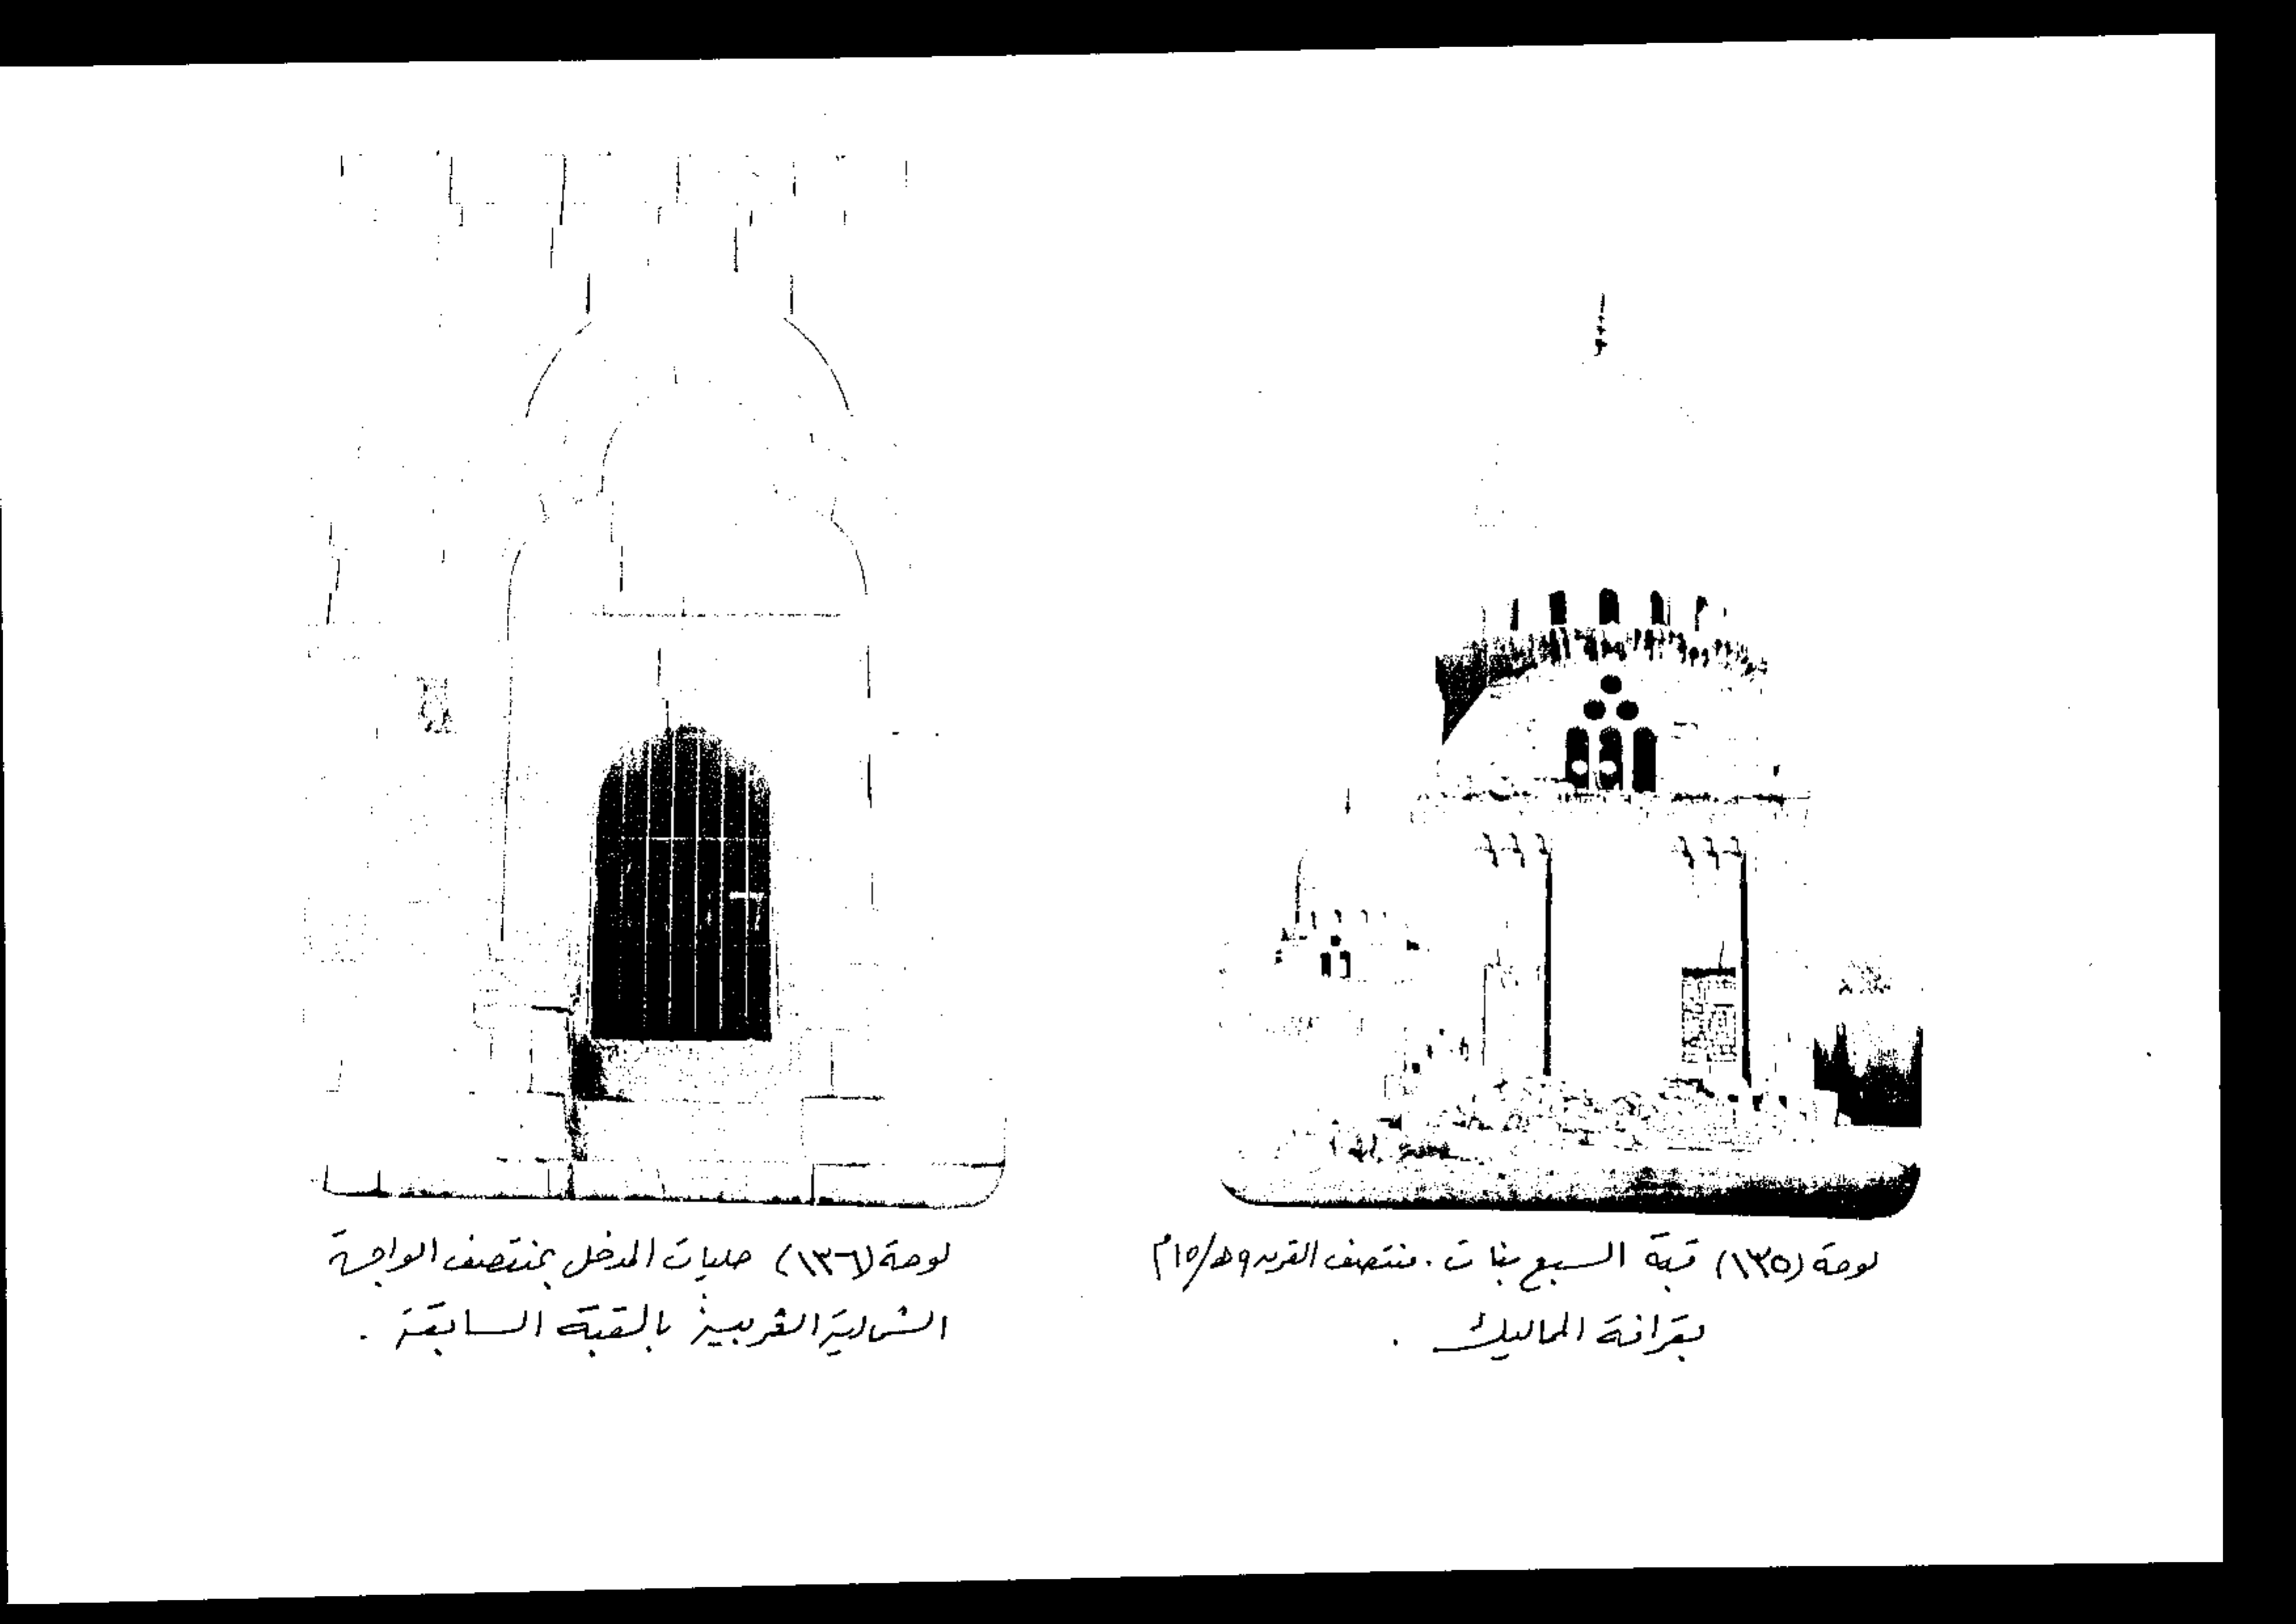 لوحة (١٣٥) قبة السبع بنات . منتصف القرن ٩هـ/١٥م
بقرافة المماليك .
لوحة (١٣٦) حليات المدخل بمنتصف الواجهة
الشمالية الغربية بالقبة السابقة .